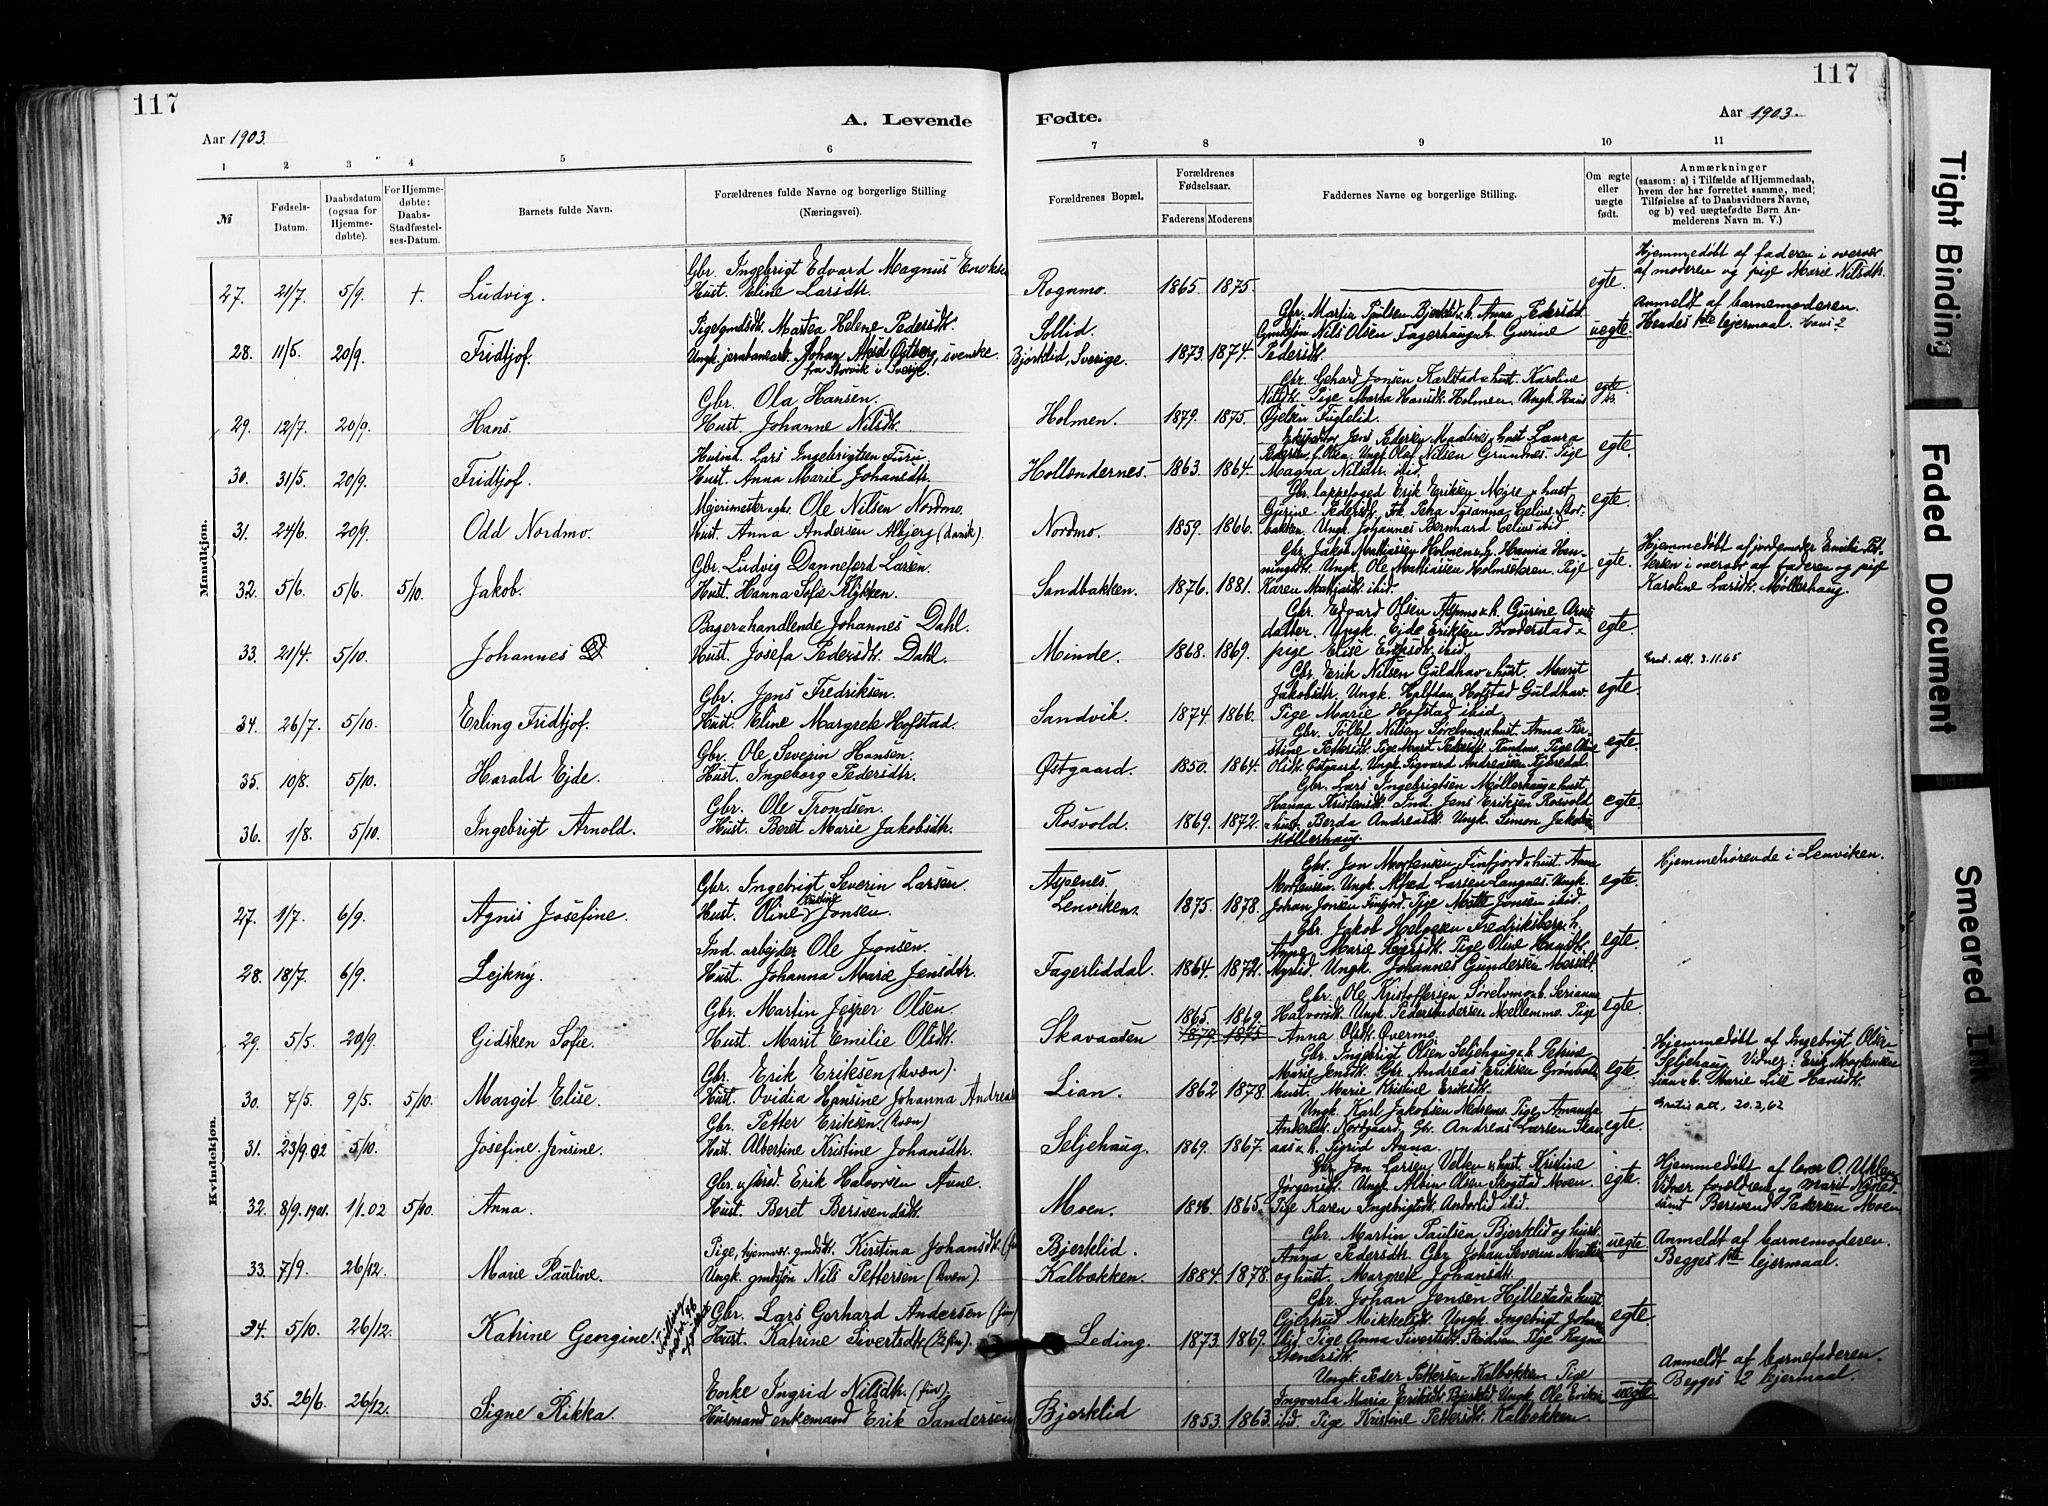 117
117
Aar 1903.
A. Levende
Fødte.
Aar 1903.
1 2 3 4 5 6 7 8 9 10 11
№
Fødsels-Datum.
Daabsdatum (ogsaa for Hjemme-døbte).
For Hjemme-døbte: Daabs-Stadfæstel-ses-Datum.
Barnets fulde Navn.
Forældrenes fulde Navne og borgerlige Stilling (Næringsvei).
Forældrenes Bopæl.
Forældrenes Fødselsaar.
Faderens Moderens
Faddernes Navne og borgerlige Stilling.
Om ægte eller uægte født.
Anmærkninger
(saasom: a) i Tilfælde af Hjemmedaab,
hvem der har forrettet samme, med
Tilføielse af to Daabsvidners Navne,
og b) ved uægtefødte Børn An-
melderens Navn m. V.)
Mandkjøn.
Gbr. Ingebrigt Edvard Magnus
27. 21/7. 5/9. +. Ludvig. Hust. Eline Larsdtr. Rognmo. 1865. 1875. egte.
Hjemmedøbt af faderen i overvær
af moderen og pige Marie Nilsdtr.
Pige gmdsdt. Martea Helene Pedersdt. Sollid.
28. 11/5. 20/9. Fridtjof. Ungk. jernbanearb. Johan Østberg, svenske Bjørklid, Sverige. 1873. 1874. uegte.
fra Storvik i Sverige.
Gbr. Martin Paulsen Bjerklid u. h. Anna Pedersdt
Gmdsøn Nils Olsen Fagerhaug u. h. Gurine
Pedersdt.
Anmeldt af barnemoderen.
Hendes 1ste lejermaal. hans 2
Gbr. Ola Hansen.
29. 12/7. 20/9. Hans. Hust. Johanne Nilsdt. Holmen. 1879. 1875. egte.
Gbr. Gehard Jonsen Karlstad u. hust. Karoline
Nilsdt. Pige Marta Hansdt. Holmen. Ungk. Hans
Fuglelid.
Husmd. Lars Ingebrigtsen Furu
30. 31/5. 20/9. Fridtjof. Hust. Anna Marie Johansdtr. Hollendernes. 1863. 1864. egte.
Jens Pedersen Maalsnes u. hust Laura
Ungk Olaf Nilsen Grundnes. Pige
Magna Nilsdtr. ibid.
Mejerimester u. gbr. Ole Nilsen Nordmo.
31. 24/6. 20/9. Odd Nordmo. Hust. Anna Andersen Albjerg (dansk). Nordmo. 1859. 1866. egte.
Gbr. lappefoged Erik Eriksen Myre u. hust
Gurine Pedersdt. Frk. Petra Susanna Celius, Stor-
bakken. Ungk. Johannes Bernhard Celius ibid
Gbr. Ludvig Danneferd Larsen.
32. 5/6. 5/6. 5/10. Jakob. Hust. Hanna Sofie Klykken. Sandbakken. 1876. 1881. egte.
Gbr. Jakob Mathiassen Holmen u. h. Hanna Hen-
ningsdt. Ungk. Ole Mathiassen Holmseteren. Pige
Karen Mathiasdt. ibid.
Hjemmedøbt af jordemoder Emilie Pet-
tersen i overvær af faderen og pige
Karoline Larsdt. Møllerhaug.
Bager u. handlende Johannes Dahl.
33. 21/4. 5/10. Johannes D Hust. Josefa Pedersdt. Dahl. Minde. 1868. 1869. egte.
Gbr. Edvard Olsen Aspmo u. h. Gurine Arns
datter. Ungk. Ejde Eriksen Broderstad u.
pige Elise ibid.
Grat. att. 3.11.65
Gbr. Jens Fredriksen.
34. 26/7. 5/10. Erling Fridtjof. Hust. Eline Margrete Hofstad. Sandvik. 1874. 1866. egte.
Gbr. Erik Nilsen Guldhav u. hust. Marit
Jakobsdtr. Ungk. Halfdan Hofstad Guldhav.
Pige Marie Hofstad ibid
Gbr. Ole Severin Hansen.
35. 10/8. 5/10. Harald Ejde. Hust. Ingeborg Pedersdtr. Østgaard. 1850. 1864. egte.
Gbr. Tollef Nilsen Sørelvmo u. hust. Anna Kir-
stine Pettersdt. Pige Marit Pedersdt. Pige Oline
Olsdt. Østgaard. Ungk. Sigvard Andreassen Kjæredal.
Gbr. Ole Trondsen.
36. 1/8. 5/10. Ingebrigt Arnold. Hust. Beret Marie Jakobsdtr. Rosvold. 1869. 1872. egte.
Gbr. Lars Ingebrigtsen Møllerhaug u. hust
Hanna Kristensdt. Ind. Jens Eriksen Rosvold
u. hust. Berda Andreasdt. Ungk. Simon Jakobs.
Møllerhaug.
Kvindekjøn.
Gbr. Ingebrigt Severin Larsen. Aspenes
27. 1/7. 6/9. Agnis Josefine. Hust. Oline Kristine Jonsen. Lenviken. 1875. 1878. egte.
Gbr. Jon Mortensen Finfjord u. hust. Anna
Mortensen. Ungk. Alfred Larsen Langnes. Ungk.
Johan Jonsen Finfjord. Pige Jonsen ibid.
Hjemmehørende i Lenviken.
Ind. arbejder Ole Jonsen.
28. 18/7. 6/9. Lejkny. Hust. Johanna Marie Jensdtr. Fagerliddal. 1864. 1872. egte.
Gbr. Jakob Helgesen Fredriksberg u. h.
Anne Marie Pige Oline Hansdt.
Myrlid. Ungk. Johannes Gundersen
Gbr. Martin Jesper Olsen.
29. 5/5. 20/9. Gidsken Sofie. Hust. Marit Emilie Olsdt. Skavaasen 1865. 1869. 1879 1875 egte.
Gbr. Ole Kristoffersen Sørelvmo u. h. Serianna
Halvorsdt. Ungk. Peder Andersen Mellemmo. Pige
Anna Olsdt. Øvermo.
Gbr. Erik Eriksen (kvæn)
30. 7/5. 9/5. 5/10. Margit Elise. Hust. Ovidia Hansine Johanna Andreas Lian. 1862 1878. egte
Gbr. Ingebrigt Olsen Seljehaug u. h. Petrine
Marie Jensdt. Gbr. Andreas Eriksen Grønvold
hust. Marie Kristine Eriksdt.
Hjemmedøbt af Ingebrigt Olsen
Seljehaug Vidner: Erik Mortensen
Lian u. h. Marie Hansdt.
Gratis att, 20.2.62
Gbr. Petter Eriksen. (kvæn)
31. 23/9.02 5/10. Josefine Jensine. Hust. Albertine Kristine Johansdtr. Seljehaug. 1869. 1867. egte.
Ungk. Karl Jakobsen Nedremo. Pige Amanda
Andersdt. Nordgaard. Gbr. Andreas Larsen Skav-
aas u. h. Sigrid Anna.
Gbr. u. smed. Erik Halvorsen Avne.
32. 8/9.1901. 1/1.02 5/10. Anna. Hust. Beret Bersvendsdt. Moen. 1865. egte.
Gbr. Jon Larsen u. hust. Kristine
Jørgensdt. Ungk. Albin Olsen Skogstad Moen.
Pige Karen Ingebrigtsdt. ibid.
Hjemmedøbt af lærer O. Uhlen.
Vidner forældrene og Marit Nysted
samt Bersvend Pedersen Moen
Pige, hjemvær. gmdsdt. Kirstina Johansdt. Bjerklid.
33. 7/9. 26/12. Marie Pauline. Ungk. gmdsøn Nils Pettersen (kvæn). Kalbækken. 1884. 1878. uegte.
Gbr. Martin Paulsen Bjerklid og hust.
Anna Pedersdtr. Gbr. Johan Severin
og hust. Margrete Johansdt.
Anmeldt af barnemoderen.
Begges 1ste lejermaal.
Gbr. Lars Gerhard Andersen (fin)
34. 5/10. 26/12. Katrine Georgine! Hust. Katrine Sivertsdt. Leding. 1873. 1869. egte.
Gbr. Johan Jensen Hillestad u. hust
Gjertrud Mikkelsdt. Ungk. Ingebrigt
Pige Anna Sivertsdt. Pige Ragna
Stenersdt.
Enke Ingrid Nilsdtr. (fin)
35. 26/6. 26/12. Signe Rikka. Husmand enkemand Erik Sandersen Bjerklid 1853. 1863. uegte
Ungk. Peder Pettersen Kalbækken. Pige
Ingvarda Maria Eriksdt. Bjerklid. Ungk. Ole Eriks.
ibid. Pige Kristine Pettersdt. Kalbækken.
Anmeldt af barnefaderen.
Begges 2 lejermaal.
Tight Binding
Faded Document
Smeared Ink